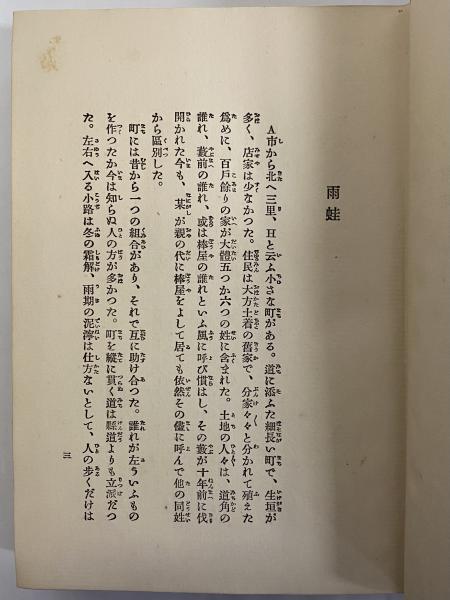 雨蛙
A市から北へ三里、Hと云ふ小さな町がある。道に添ふた細長い町で、生垣が
多く、店家は少なかつた。住民は大方土着の舊家で、分家々々と分かれて殖えた
爲めに、百戸餘りの家が大體五つか六つの姓に含まれた。土地の人々は、道角の
誰れ、藪前の誰れ、或は棒屋の誰れといふ風に呼び慣はし、その藪が十年前に伐
開かれた今も、某が親の代に棒屋をよして居ても依然その儘に呼んで他の同姓
から區別した。
町には昔から一つの組合があり、それで互に助け合つた。誰れが左ういふもの
を作つたか今は知らぬ人の方が多かつた。町を縱に貫く道は縣道よりも立派だつ
た。左右へ入る小路は冬の霜解、雨期の泥濘は仕方ないとして、人の歩くだけは
三